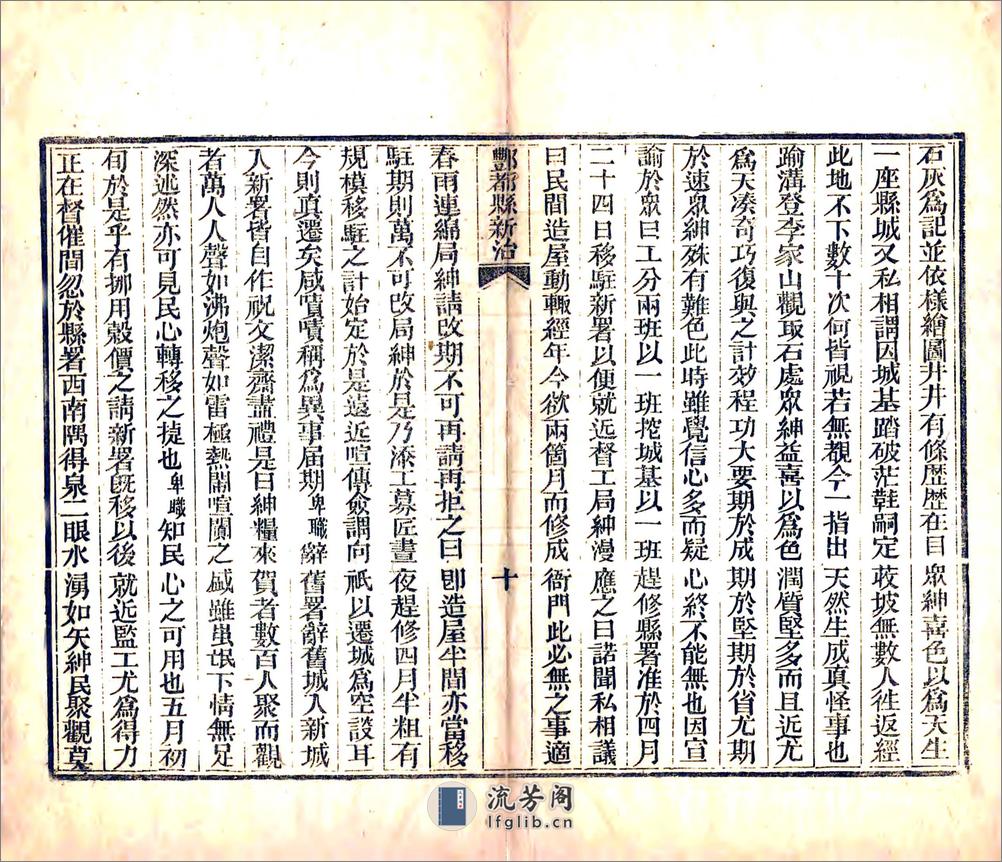 石灰為記並依樣繪圖井井有條歷歷在目衆紳喜色以為天生
一座縣城又私相謂因城基踏破茫鞋嗣定苃坡無數人徃返經
此地不下數十次何皆視若無覩今一指出天然生成真怪事也
踰溝登李家山觀取石處衆紳益喜以為色潤質堅多而且近尤
為天湊奇巧復與之計效程功大要期於成期於堅期於省尤期
於速衆紳殊有難色此時雖覺信心多而疑心終不能無也因宣
諭於衆曰工分兩班以一班挖城基以一班趕修縣署准於四月
二十四日移駐新署以便就近督工局紳漫應之曰諾聞私相議
曰民間造屋動輒經年今欲兩箇月而修成衙門此必無之事適
酆都縣新治 十
春雨連綿局紳請改期不可再請再拒之曰即造屋半間亦當移
駐期則萬不可改局紳於是乃添工募匠晝夜趕修四月半粗有
規模移駐之計始定於是遠近喧傳僉謂向祇以遷城為空談耳
今則真遷矣咸嘖嘖稱為異事屆期卑職辭舊署辭舊城入新城
入新署皆自作祝文潔齋盡禮是日紳糧來賀者數百人聚而觀
者萬人人聲如沸炮聲如雷極熱鬧喧闐之盛雖蚩氓下情無足
深述然亦可見民心轉移之捷也卑職知民心之可用也五月初
旬於是乎有挪用穀價之請新署旣移以後就近監工尤為得力
正在督催間忽於縣署西南隅得泉二眼水湧如矢紳民聚觀莫
流芳阁
lfglib.cn